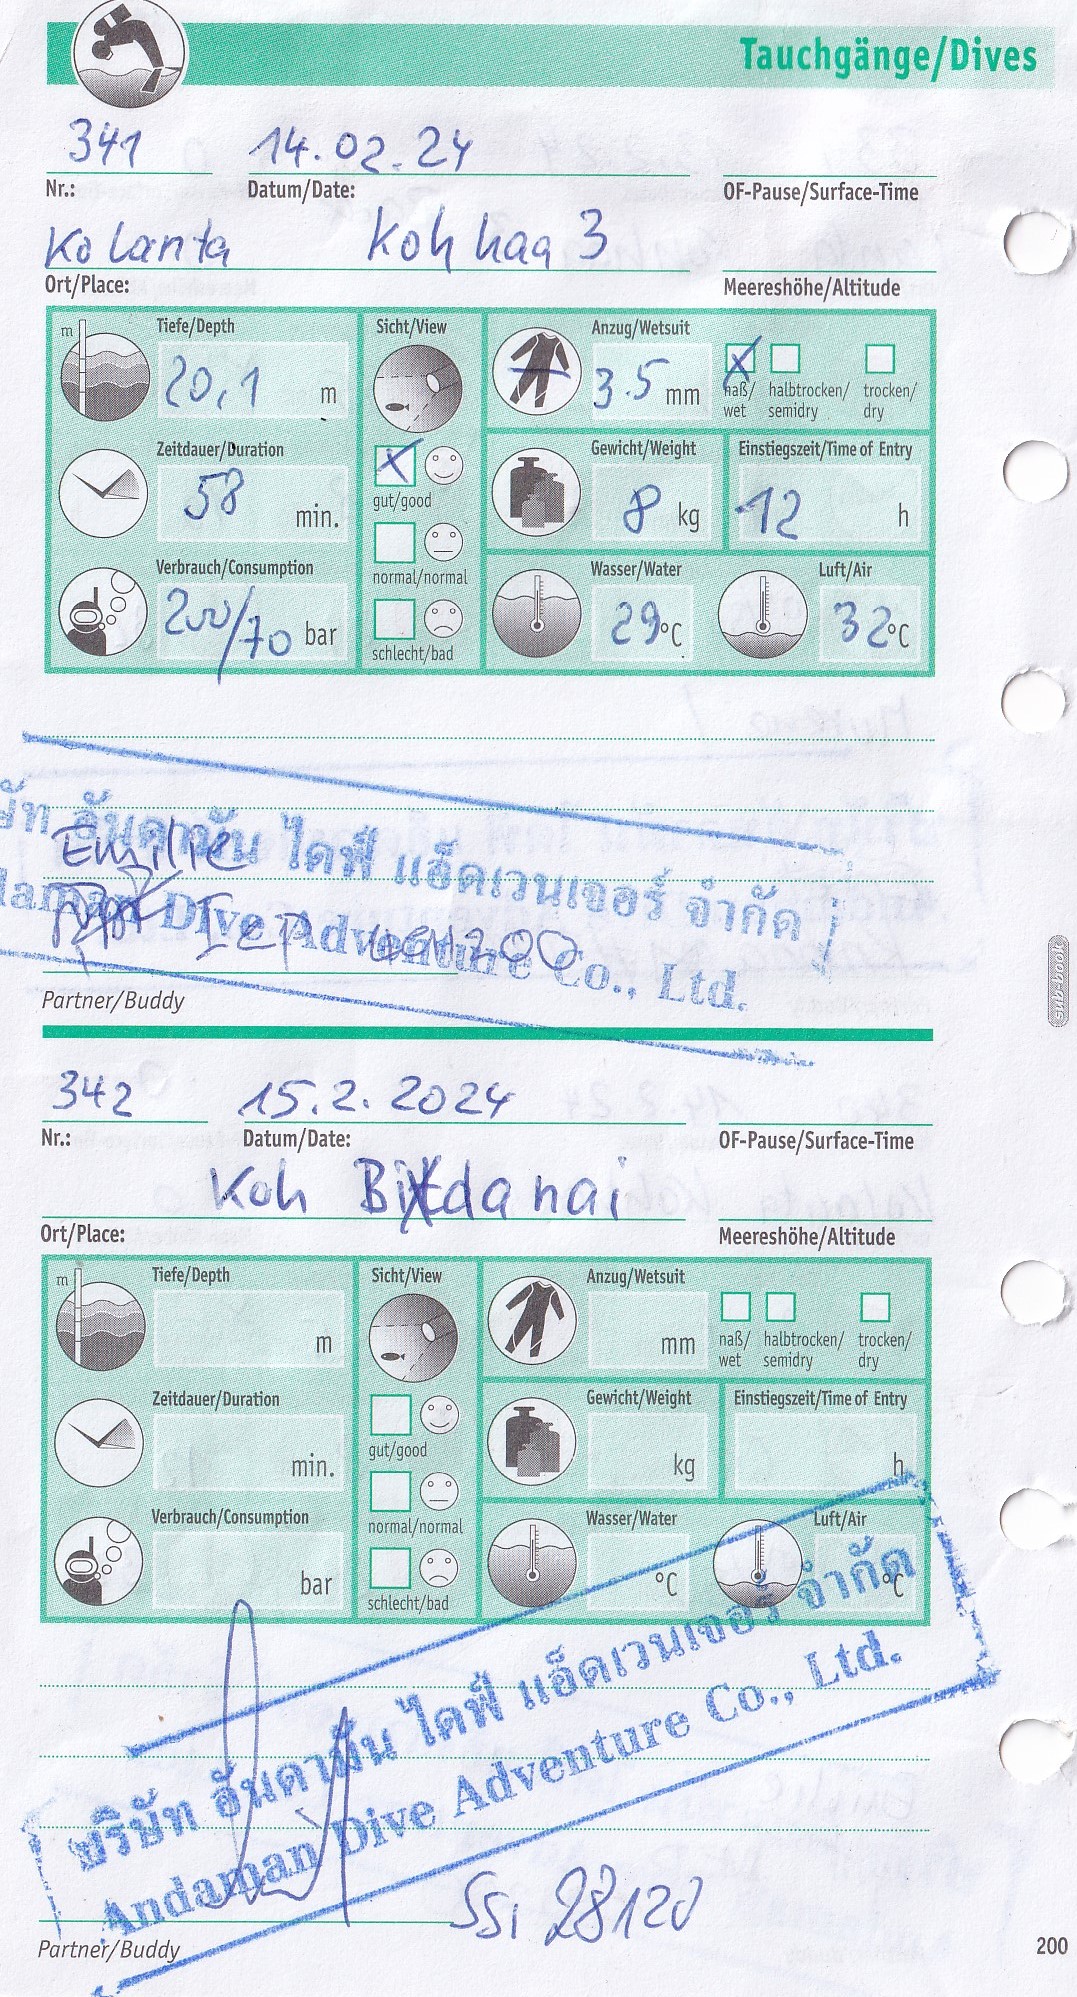 Tauchgänge/Dives
341 14.02.24
Nr.: Datum/Date: OF-Pause/Surface-Time
Ko Lanta Koh haa 3
Ort/Place: Meereshöhe/Altitude
m Tiefe/Depth Sicht/View Anzug/Wetsuit
20,1 m 3.5 mm X
naß/ halbtrocken/ trocken/
wet semidry dry
Zeitdauer/Duration Gewicht/Weight Einstiegszeit/Time of Entry
58 min. X gut/good 8 kg 12 h
Verbrauch/Consumption normal/normal Wasser/Water Luft/Air
200/70 bar 29°C 32°C
schlecht/bad
อันดามัน ไดฟ์ แอ็ดเวนเจอร์ จำกัด
Emilie
Dive Adventure Co., Ltd.
Partner/Buddy
sub-book
342 15.2.2024
Nr.: Datum/Date: OF-Pause/Surface-Time
Koh Bida nai
Ort/Place: Meereshöhe/Altitude
m Tiefe/Depth Sicht/View Anzug/Wetsuit
m mm
naß/ halbtrocken/ trocken/
wet semidry dry
Zeitdauer/Duration Gewicht/Weight Einstiegszeit/Time of Entry
min. gut/good kg h
Verbrauch/Consumption normal/normal Wasser/Water Luft/Air
bar °C °C
schlecht/bad
บริษัท อันดามัน ไดฟ์ แอ็ดเวนเจอร์ จำกัด
Andaman Dive Adventure Co., Ltd.
SSI 28120
Partner/Buddy
200